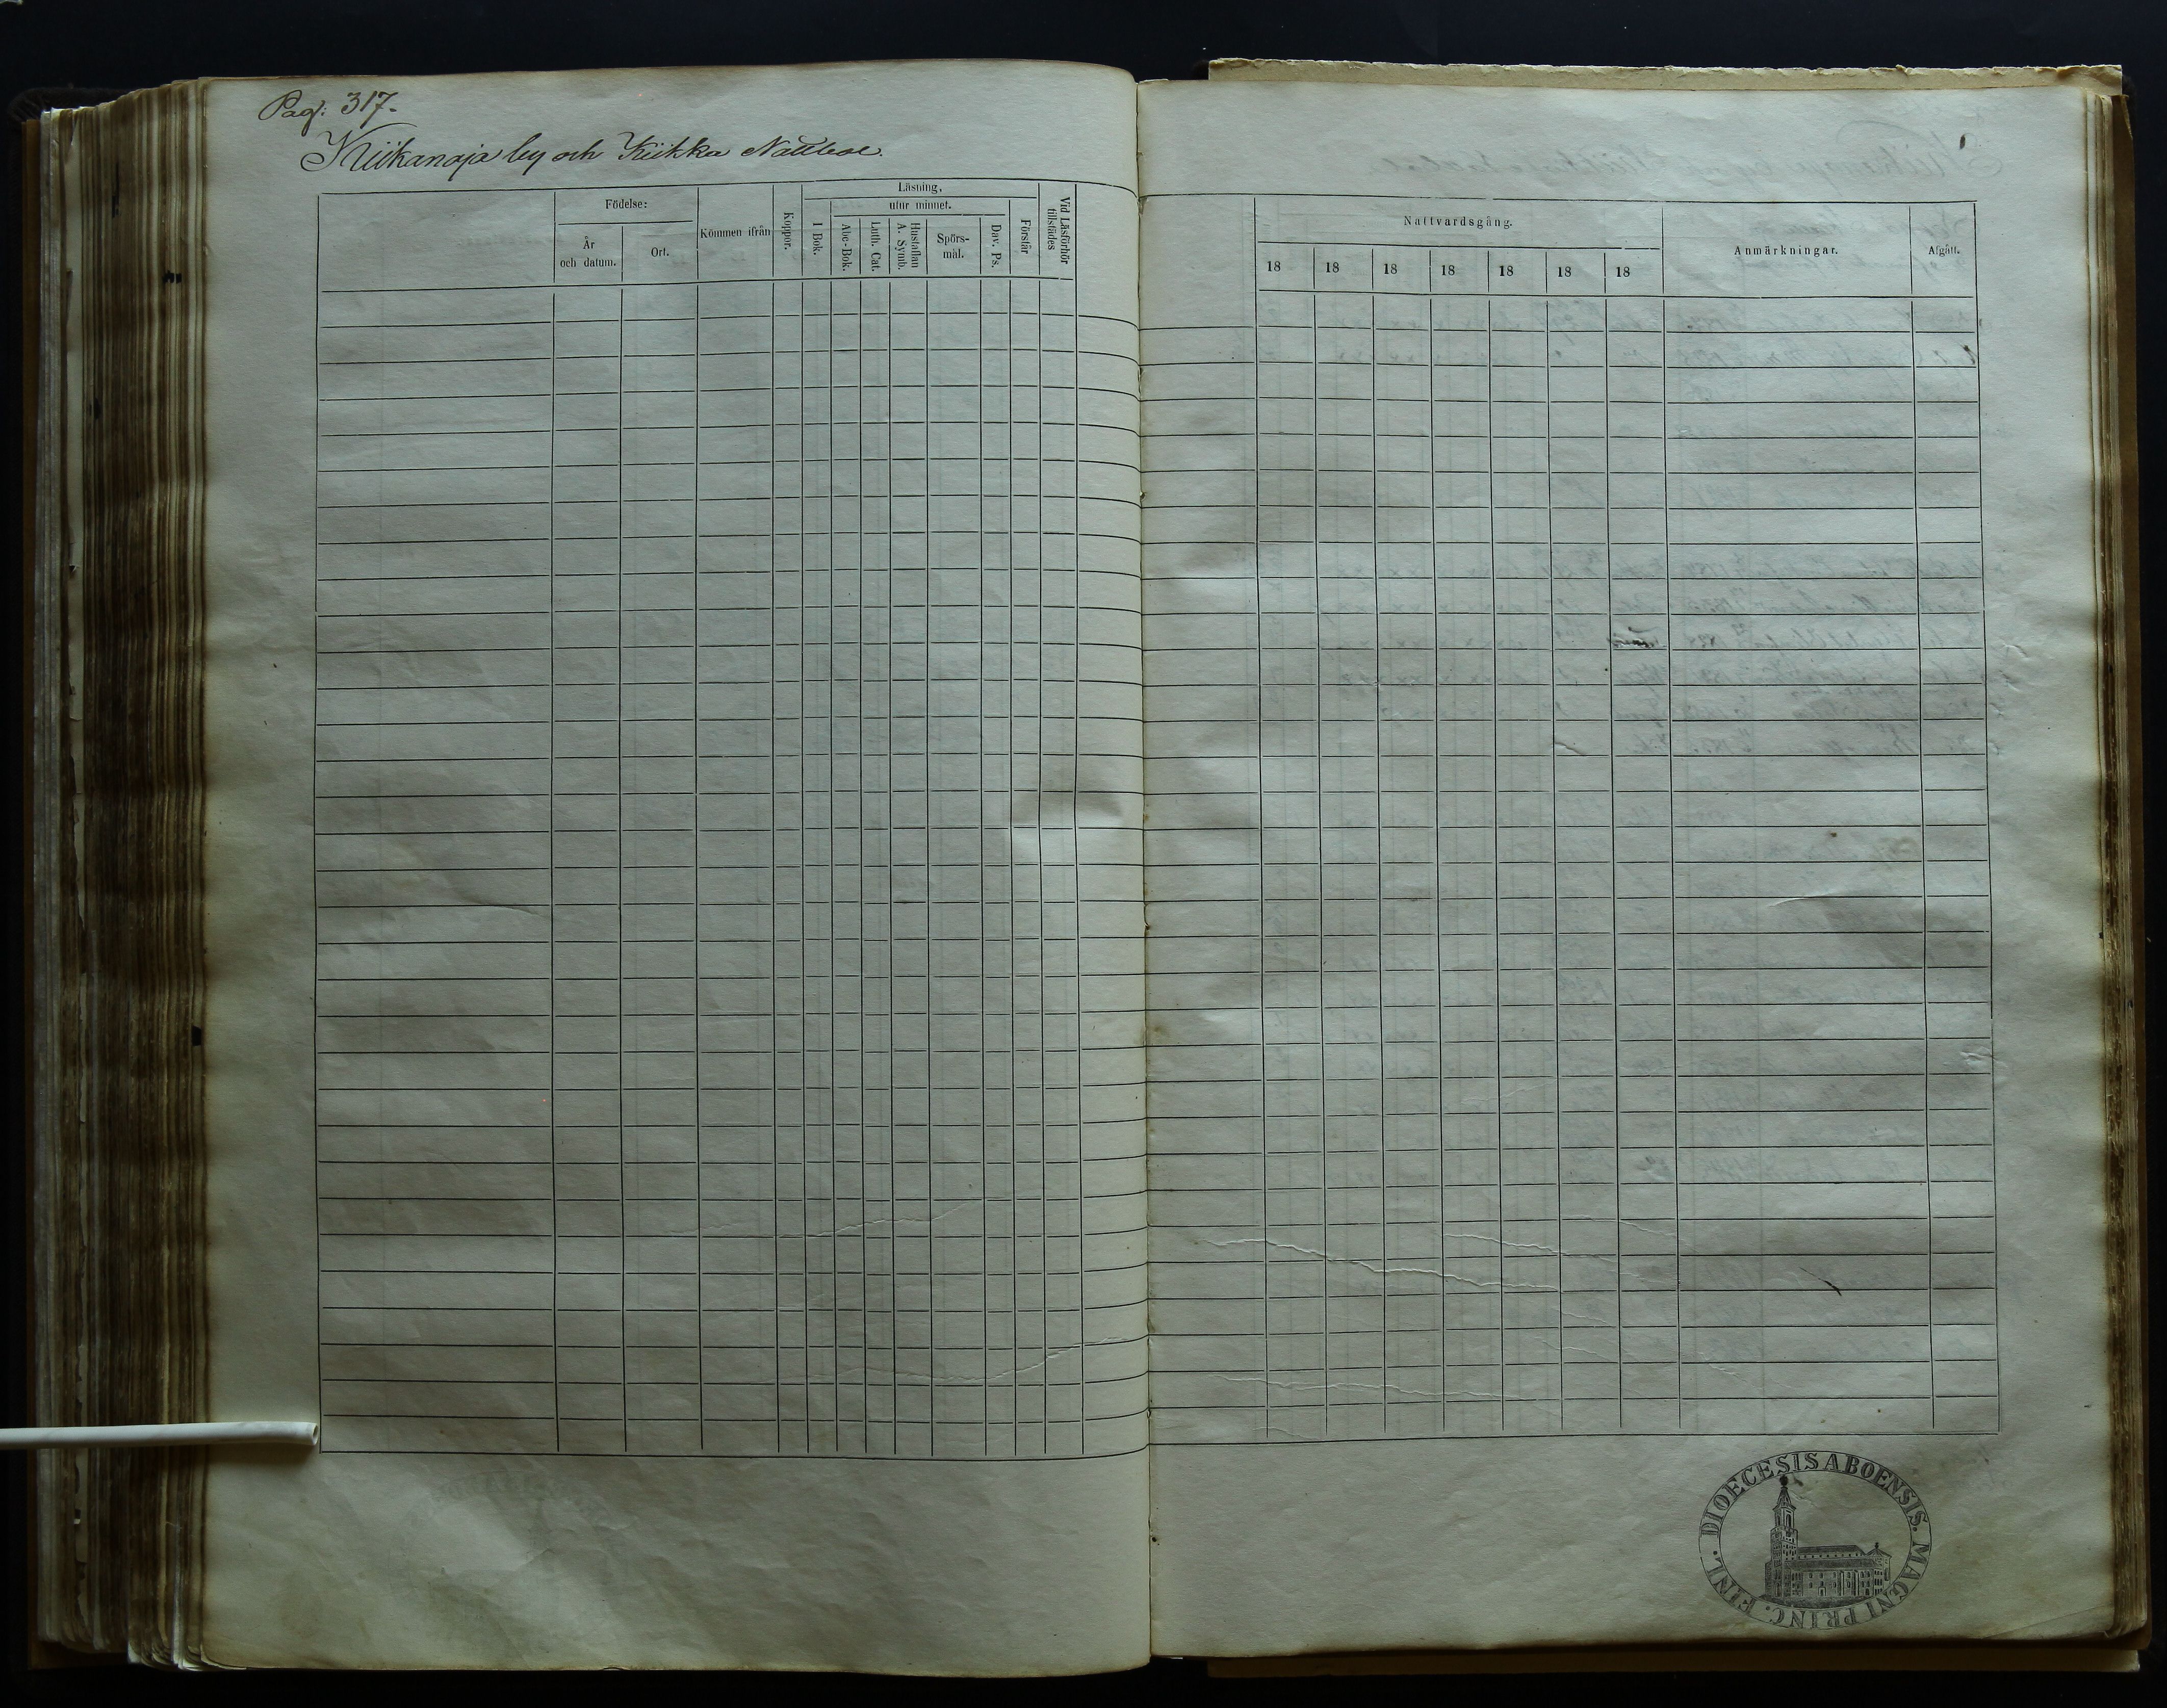 Pag: 317.
Kiikanoja by och Kiikka Nattbol.
Födelse:
År
och datum.
Ort.
Kommen ifrån
Koppor.
Läsning,
I Bok.
utur minnet.
Abc-Bok.
Luth. Cat.
Hustaflan
A. Symb.
Spörs-
mål.
Dav. Ps.
Förstår
Vid Läsförhör
tillstädes
Nattvardsgång.
18 18 18 18 18 18 18
Anmärkningar.
Afgått.
DIOECESIS ABOENSIS. MAGNI PRINC. FINL.